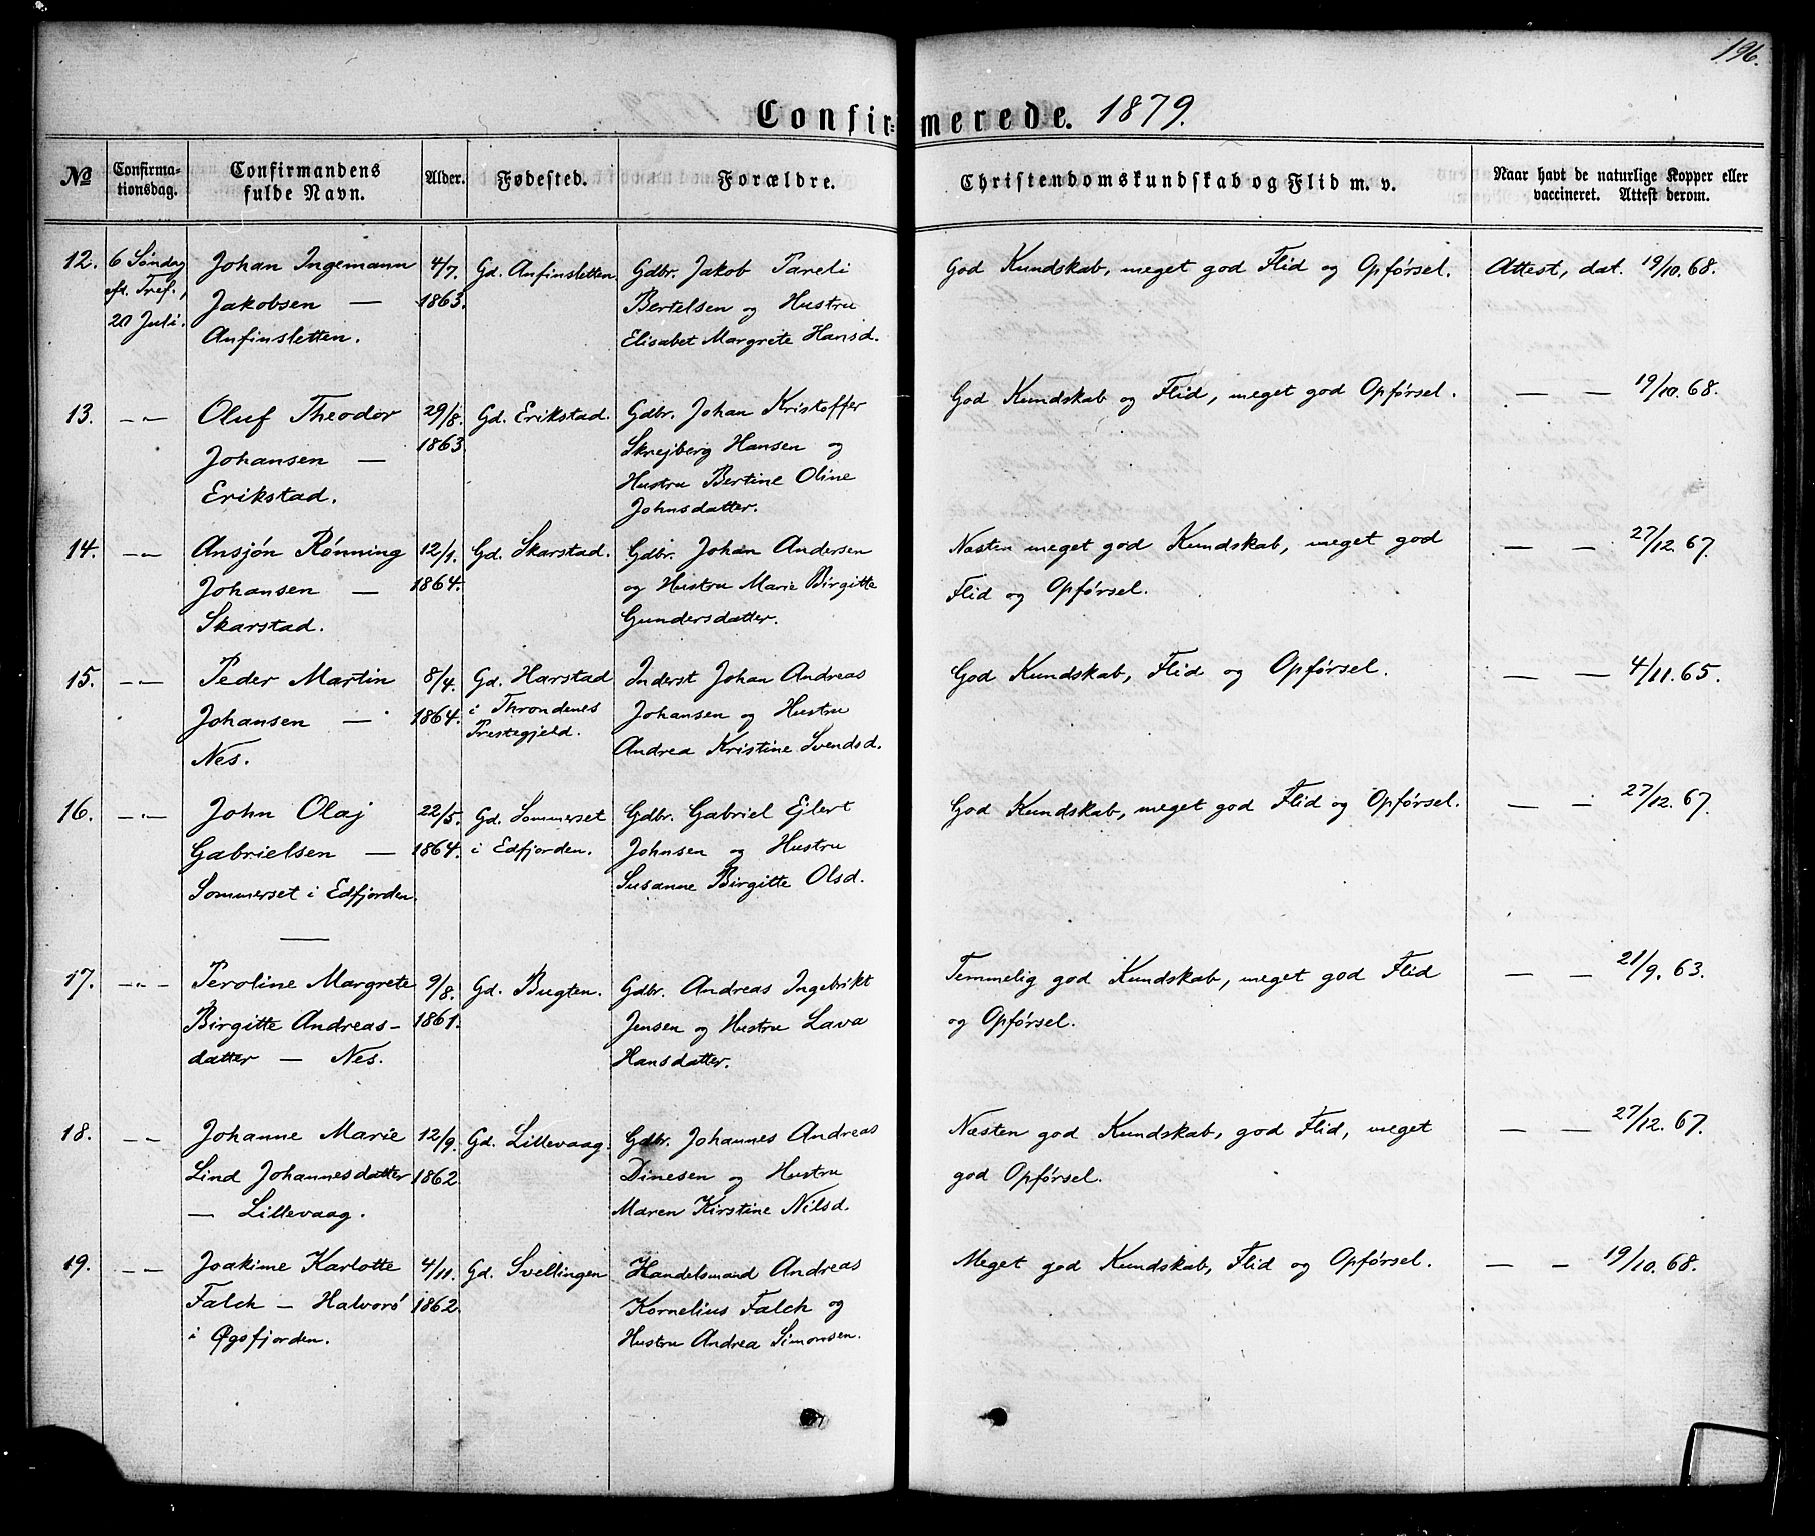 196.
Confirmerede. 1879.
No
Confirma-
tionsdag.
Confirmandens
fulde Navn.
Alder.
Fødested.
Forældre.
Christendomskundskab og Flid m. v.
Naar havt de naturlige Kopper eller
vaccineret. Attest derom.
12.
6 Søndag
eft. Tref.,
20 Juli.
Johan Ingemann
Jakobsen —
Anfinsletten.
4/7.
1863.
Gd. Anfinsletten
Gdbr. Jakob Pareli
Bertelsen og Hustru
Elisabet Margrete Hansd.
God Kundskab, meget god Flid og Opførsel.
Attest, dat. 19/10. 68.
13.
— „ —
Oluf Theodor
Johansen —
Erikstad.
29/8.
1863.
Gd. Erikstad.
Gdbr. Johan Kristoffer
Skrejberg Hansen og
Hustru Bertine Oline
Johnsdatter.
God Kundskab og Flid, meget god Opførsel.
— — 19/10. 68.
14.
— „ —
Ansjøn Rønning
Johansen —
Skarstad.
12/1.
1864.
Gd. Skarstad.
Gdbr. Johan Andersen
og Hustru Marie Birgitte
Gundersdatter.
Næsten meget god Kundskab, meget god
Flid og Opførsel.
— — 27/12. 67.
15.
— „ —
Peder Martin
Johansen —
Nes.
8/4.
1864.
Gd. Harstad
i Throndenes
Prestegjeld.
Inderst Johan Andreas
Johansen og Hustru
Andrea Kristine Svendsd.
God Kundskab, Flid og Opførsel.
— — 4/11. 65.
16.
— „ —
John Olaj
Gabrielsen —
Sommerset i Edfjorden.
22/5.
1864.
Gd. Sommerset
i Edfjorden.
Gdbr. Gabriel Ejlert
Johnsen og Hustru
Susanne Birgitte Olsd.
God Kundskab, meget god Flid og Opførsel.
— — 27/12. 67.
17.
— „ —
Peroline Margrete
Birgitte Andreas-
datter — Nes.
9/8.
1861.
Gd. Bugten.
Gdbr. Andreas Ingebrikt
Jensen og Hustru Lava
Hansdatter.
Temmelig god Kundskab, meget god Flid
og Opførsel.
— — 21/9. 63.
18.
— „ —
Johanne Marie
Lind Johannesdatter
— Lillevaag.
12/9.
1862.
Gd. Lillevaag.
Gdbr. Johannes Andreas
Dinesen og Hustru
Maren Kirstine Nilsd.
Næsten god Kundskab, god Flid, meget
god Opførsel.
— — 27/12. 67.
19.
— „ —
Joakime Karlotte
Falch — Halvorö
i Øgsfjorden.
4/11.
1862.
Gd. Svellingen
Handelsmand Andreas
Kornelius Falch og
Hustru Andrea Simonsen.
Meget god Kundskab, Flid og Opførsel.
— — 19/10. 68.